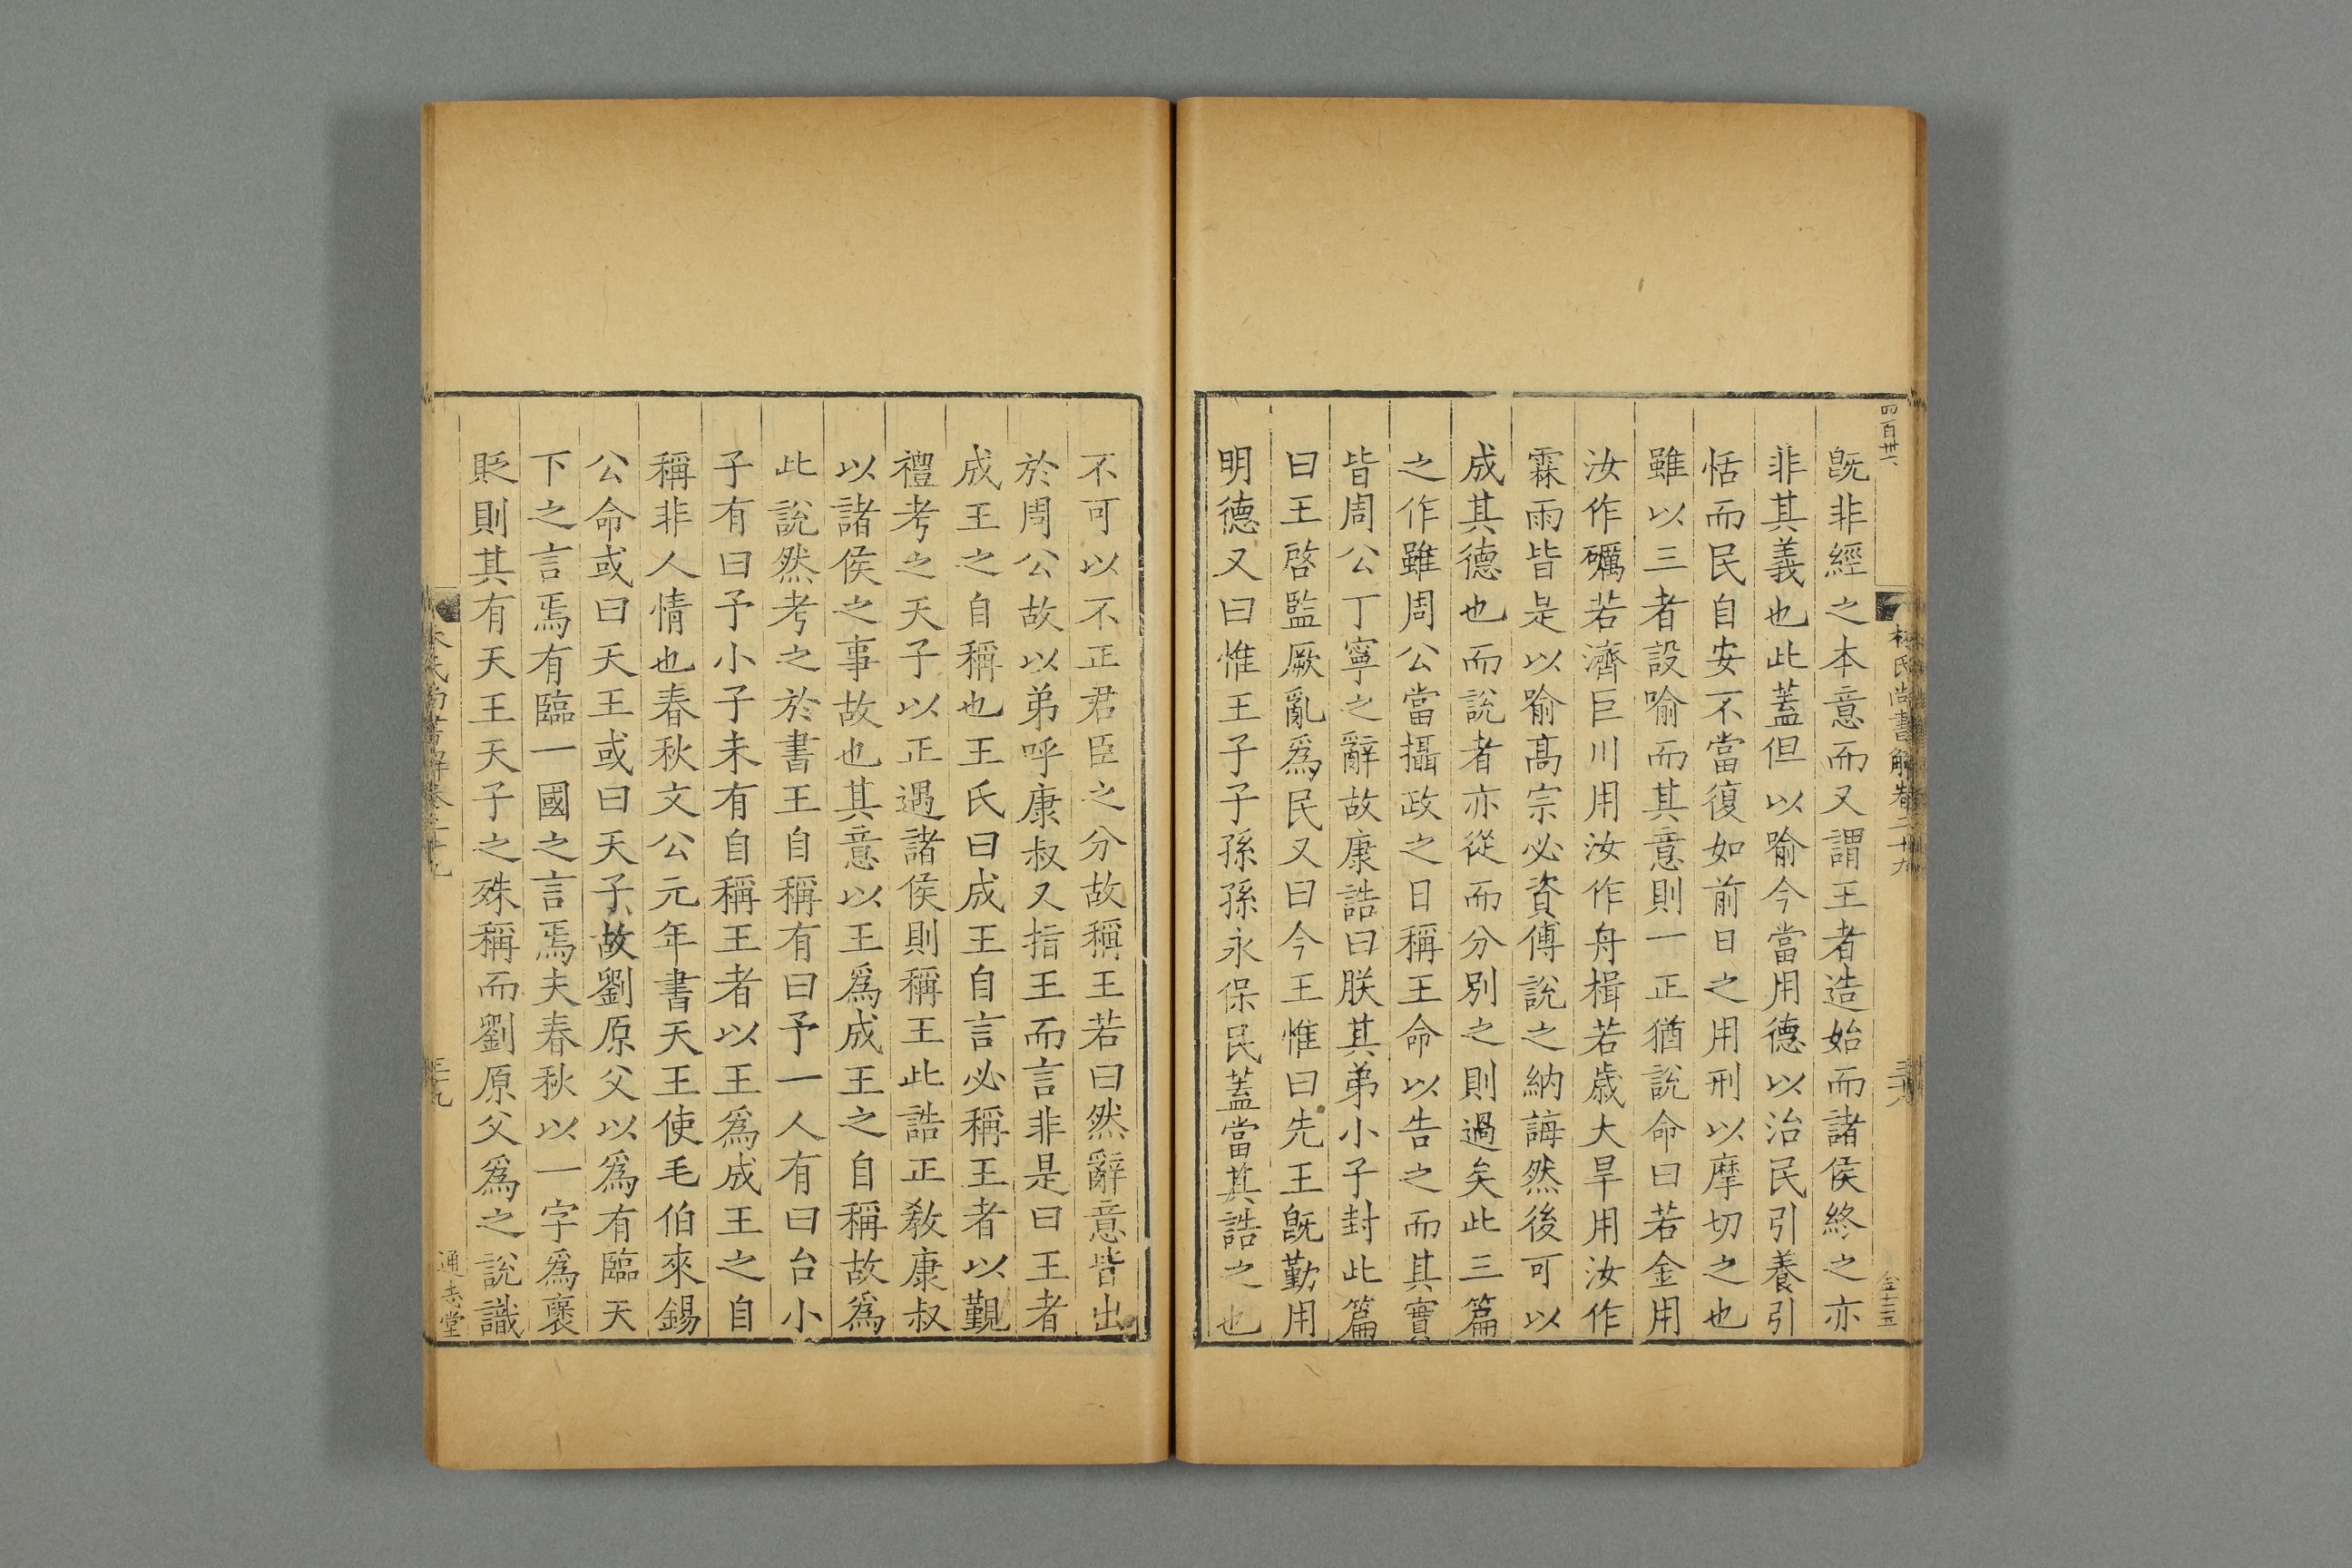 四百卅六
林氏尚書解卷二十九
既非經之本意而又謂王者造始而諸侯終之亦
非其義也此蓋但以喻今當用德以治民引養引
恬而民自安不當復如前日之用刑以摩切之也
雖以三者設喻而其意則一正猶說命曰若金用
汝作礪若濟巨川用汝作舟楫若歲大旱用汝作
霖雨皆是以喻髙宗必資傅說之納誨然後可以
成其德也而說者亦從而分別之則過矣此三篇
之作雖周公當攝政之日稱王命以告之而其實
皆周公丁寧之辭故康誥曰朕其弟小子封此篇
曰王啓監厥亂爲民又曰今王惟曰先王旣勤用
明德又曰惟王子子孫孫永保民蓋當其誥之也
不可以不正君臣之分故稱王若曰然辭意皆出
於周公故以弟呼康叔又指王而言非是曰王者
成王之自稱也王氏曰成王自言必稱王者以覲
禮考之天子以正遇諸侯則稱王此誥正敎康叔
以諸侯之事故也其意以王爲成王之自稱故爲
此說然考之於書王自稱有曰予一人有曰台小
子有曰予小子未有自稱王者以王爲成王之自
稱非人情也春秋文公元年書天王使毛伯來錫
公命或曰天王或曰天子故劉原父以爲有臨天
下之言焉有臨一國之言焉夫春秋以一字爲褒
貶則其有天王天子之殊稱而劉原父爲之說識
通志堂